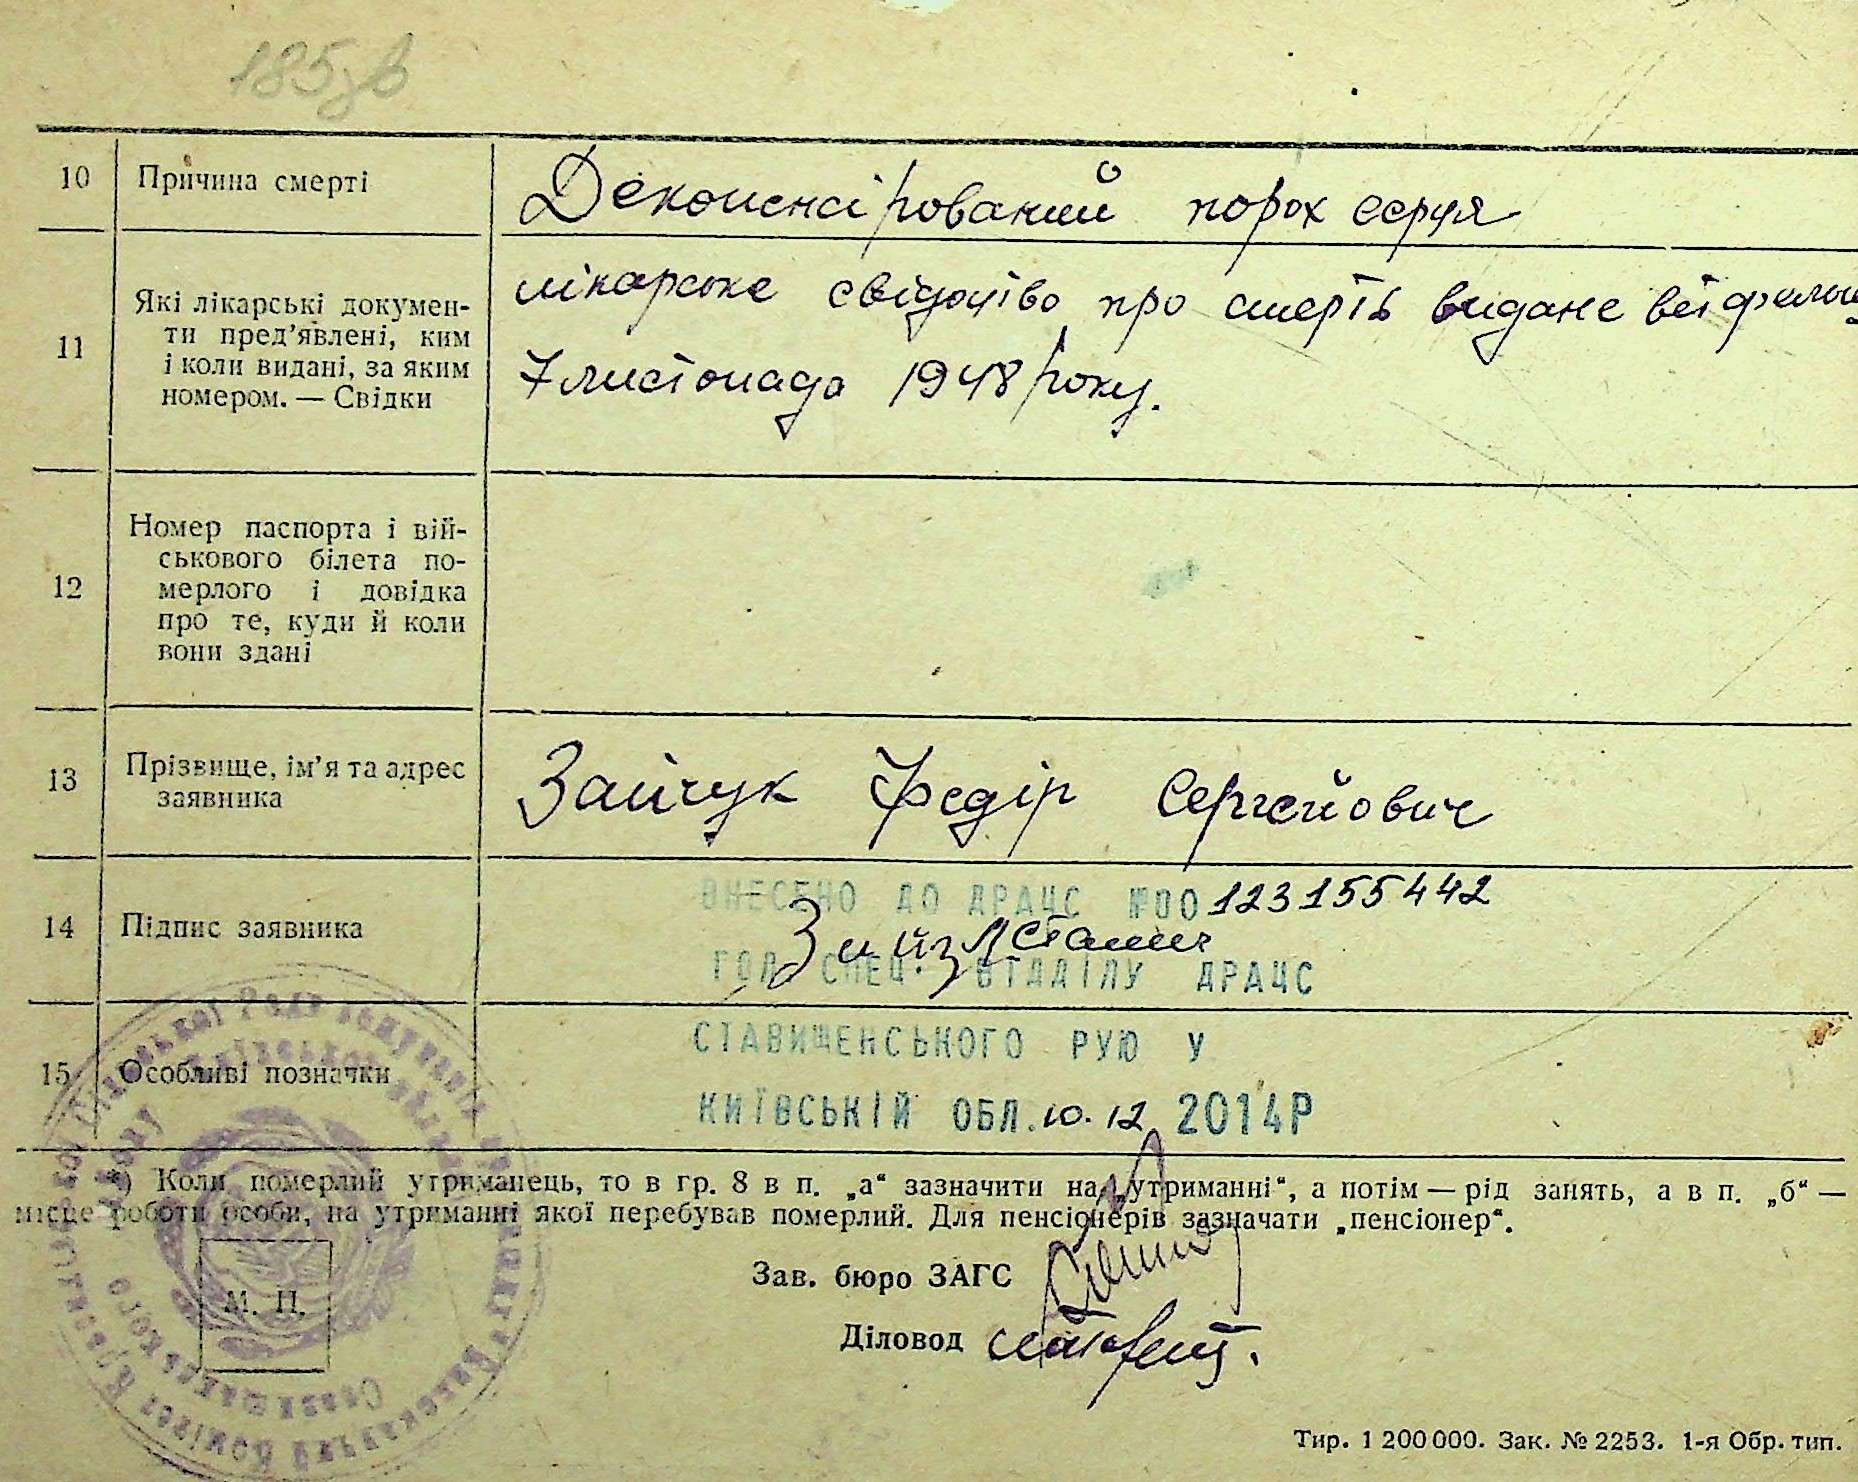 185зв
10 Причина смерті Декомпенсірований порох серця
11 Які лікарські докумен-
ти пред’явлені, ким
і коли видані, за яким
номером. — Свідки
лікарське свідоцтво про смерть видане
7 листопада 1948 року.
12 Номер паспорта і вій-
ськового білета по-
мерлого і довідка
про те, куди й коли
вони здані
13 Прізвище, ім’я та адрес
заявника
Зайчук Федір Сергейович
ВНЕСЕНО ДО ДРАЦС №00123155442
14 Підпис заявника
ГОЛ СПЕЦ. ВІДДІЛУ ДРАЦС
СТАВИЩЕНСЬКОГО РУЮ У
15 Особливі позначки
КИЇВСЬКІЙ ОБЛ. 10.12 2014Р
*) Коли померлий утриманець, то в гр. 8 в п. „а“ зазначити на „утриманні“, а потім — рід занять, а в п. „б“ —
місце роботи особи, на утриманні якої перебував померлий. Для пенсіонерів зазначати „пенсіонер“.
Зав. бюро ЗАГС
М. П.
Діловод
Тир. 1 200 000. Зак. № 2253. 1-я Обр. тип.